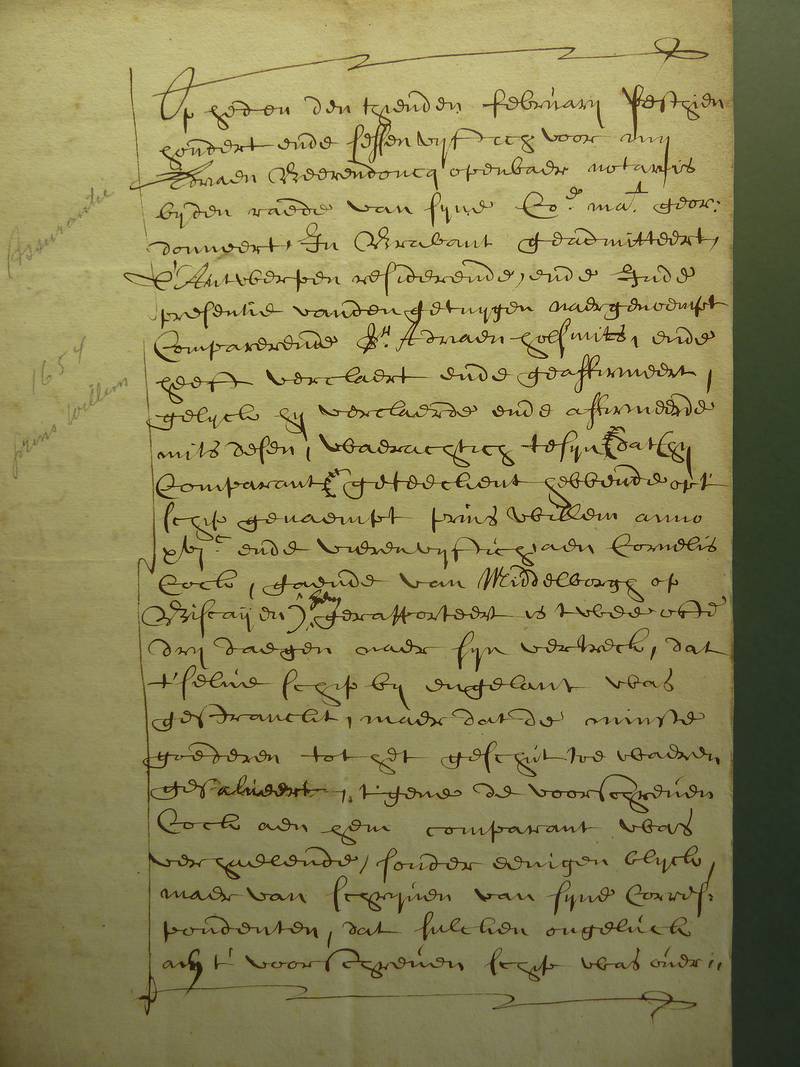 Op heden den thienden february sesthien
hondert ende sessenvyftich voor my
Adriaen Beerendoncq openbaer notaris
byden raede van syne Co.e ma.t geor:
donneert, In Brabant geadmitteert,
t'Antwerpen residerende, ende Inde
presentie vanden getuygen naergenoempt
Comparerende Sr. Adriaen golsmits, ende
heeft verclaert ende geaffirmeert,
gelyck hy verclaerde ende affirmeerde
mits desen, waerachtich te syn dat hy
Comparant geteeckent hebbende opt
schip genaempt prins Willem anno
xvj.c ende vierenvyftich aen Cornelis
Cock, gaende van Middelborgh op
Biscayen, hem gerapporteert is twee ofte
dry daegen naer syn vertreck, dat
t'selve schip by engelant was
gestrandt, maer dat de minste
goederen tot het geschut toe waeren
gesalveert, t'gene de voorschreven
Cock aen hem comparant was
verhaelende, sonder eenigen blyck,
maer van schryven van syne Corres:
pondenten, dat sulcken ongeluck
aen t' voorschreven schip was onder,,
Assurantie
1654
prins Willem